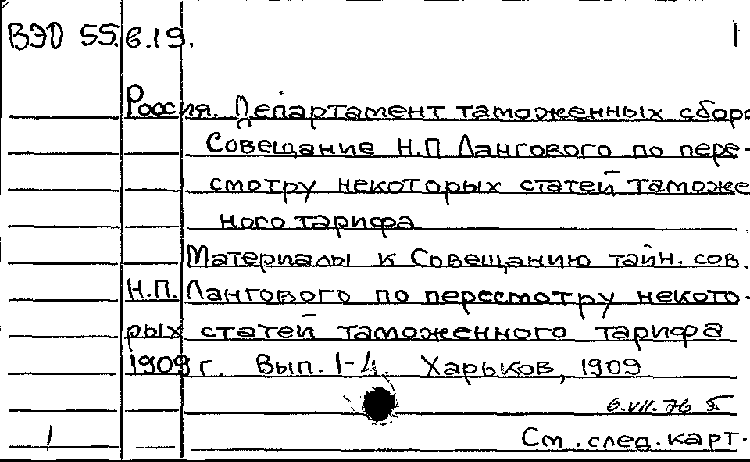 ВЭО 55.6.19. 1
Россия. Департамент таможенных сборо
Совещание Н.П. Лангового по пере-
смотру некоторых статей таможе
ного тарифа
Материалы к Совещанию тайн. сов.
Н.П. Лангового по пересмотру некото-
рых статей таможенного тарифа
1909 г. Вып. 1-4. Харьков, 1909
6.VII.76
1 См. след. карт.